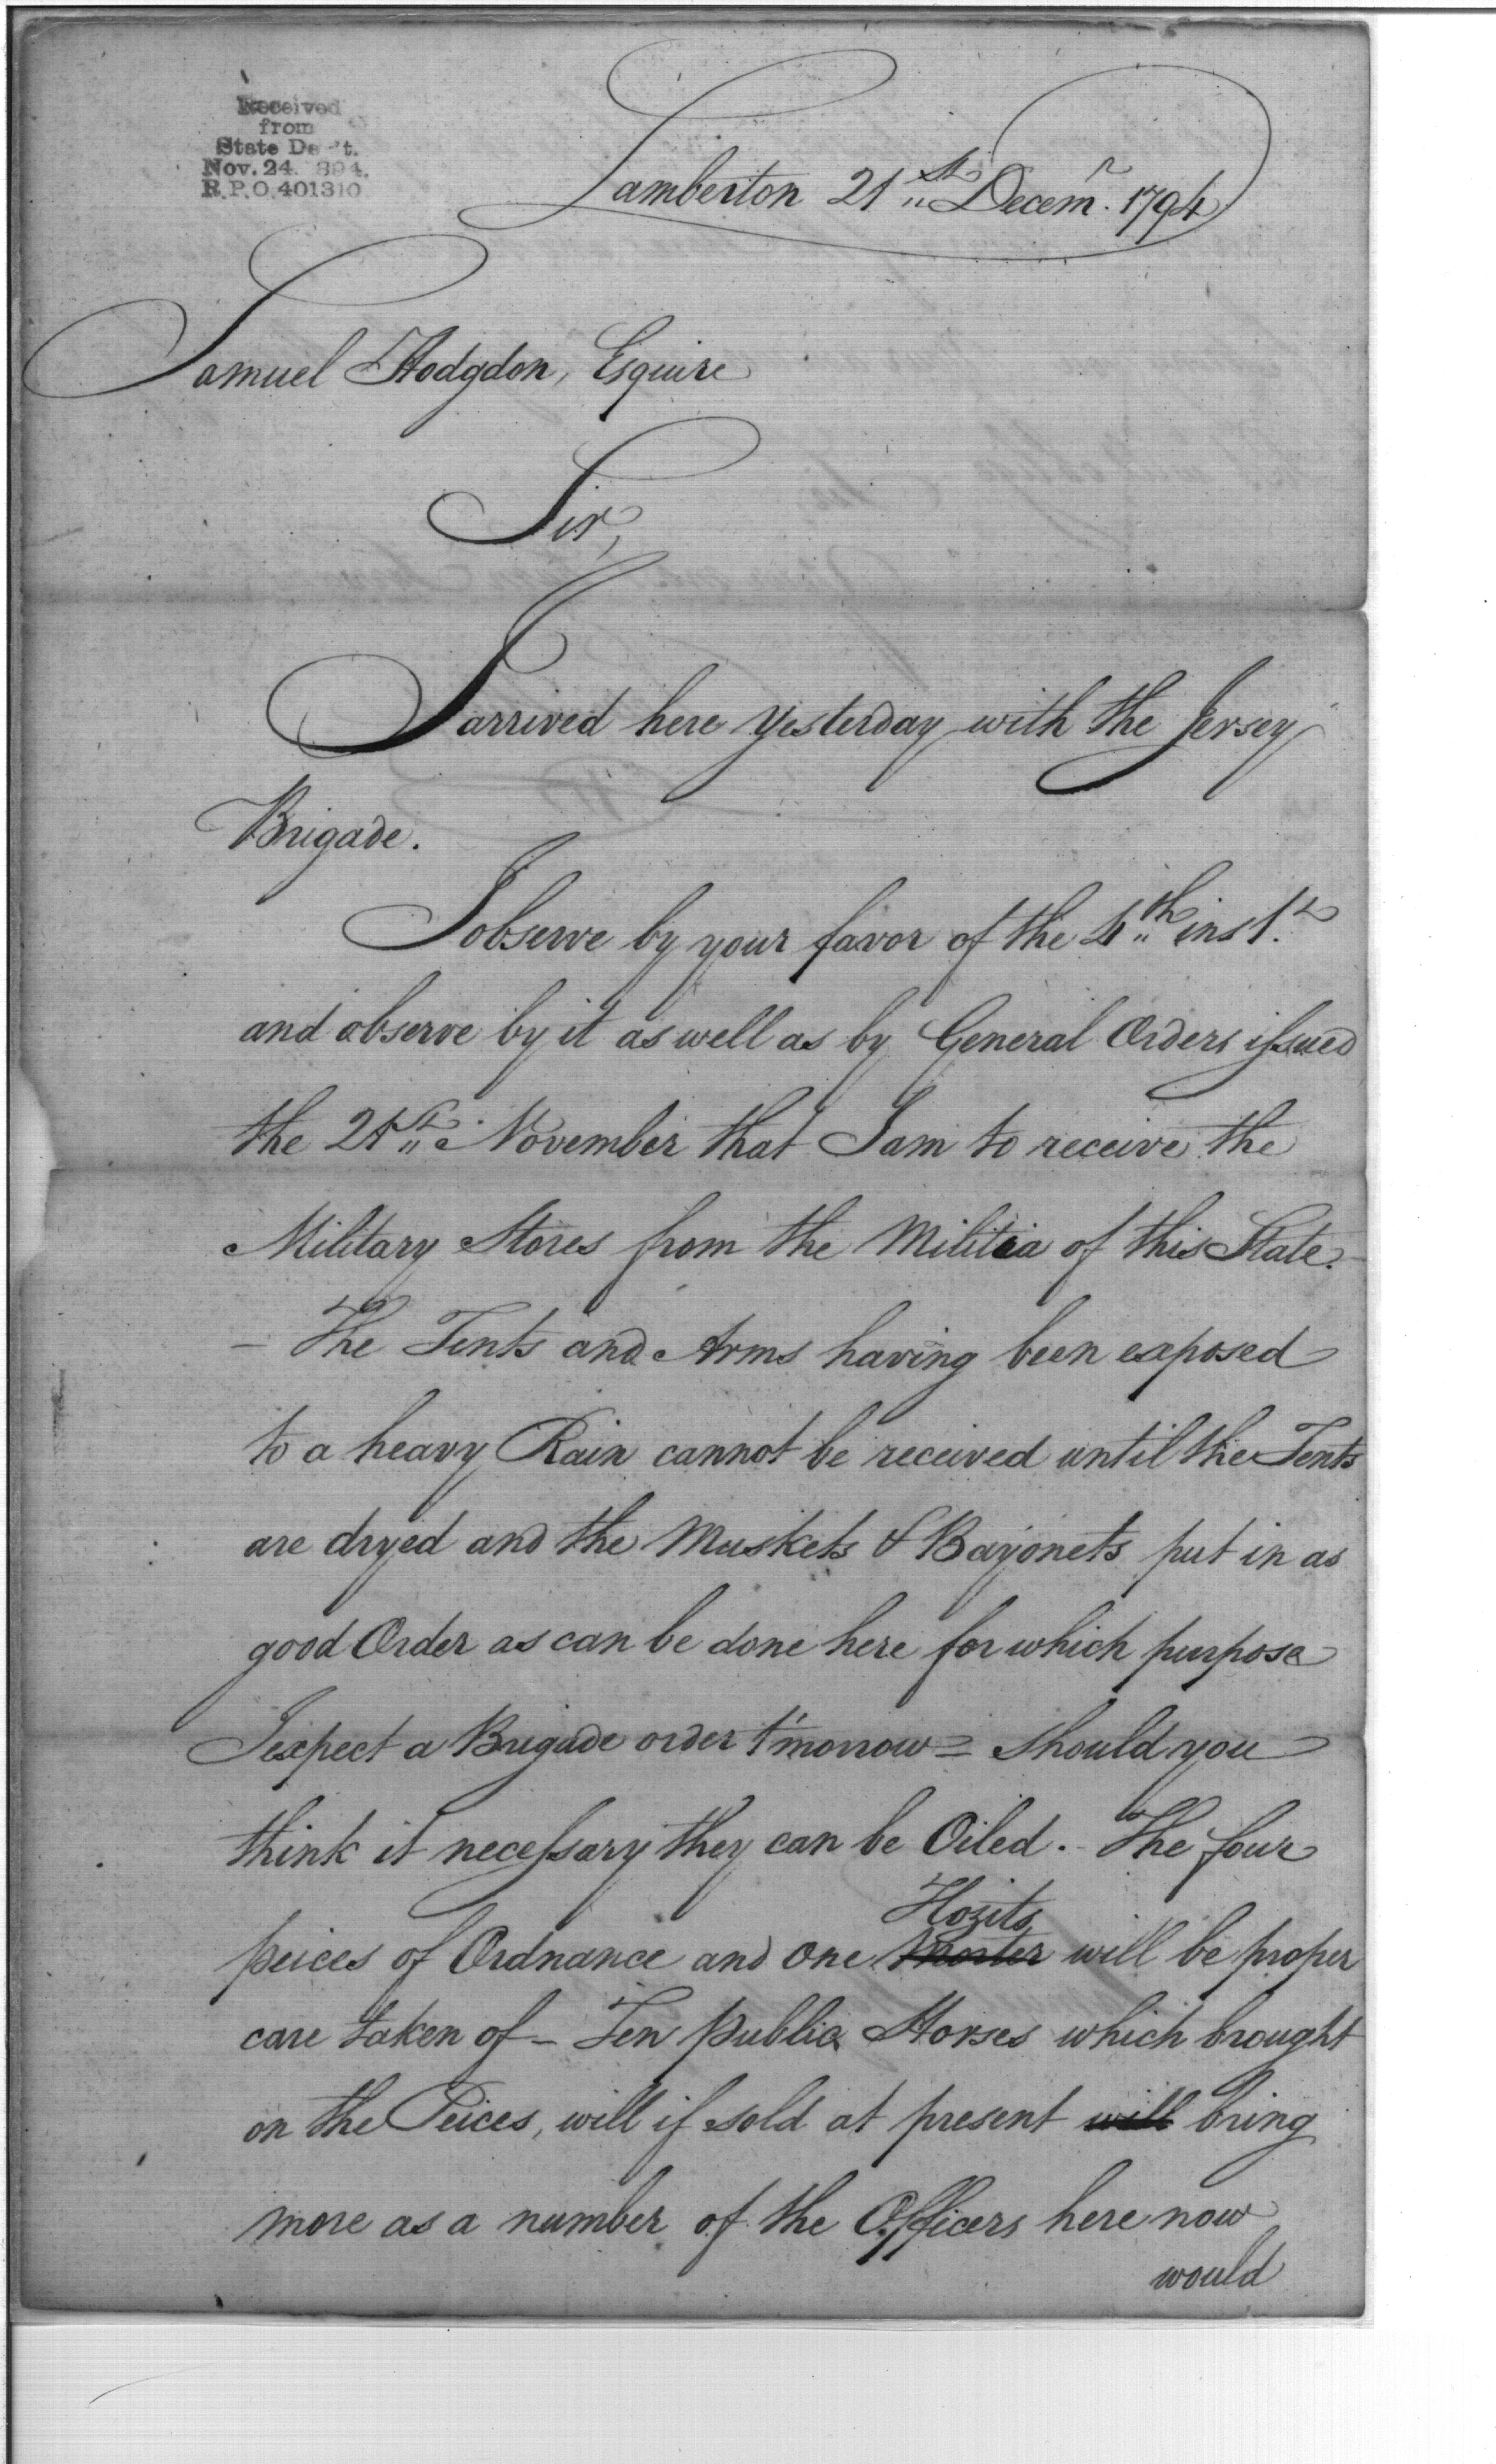 Received
from
State De't.
Nov. 24. 894.
R.P.O. 401310
Lamberton 21st Decemr. 1794
Samuel Hodgdon, Esquire
Sir,
I arrived here yesterday with the Jersey
Brigade.
I observe by your favor of the 4th inst.
and observe by it as well as by General Orders issued
the November that I am to receive the
Military Stores from the Militia of this State.
– The Tents and Arms having been exposed
to a heavy Rain cannot be received until the Tents
are dryed and the Muskets & Bayonets put in as
good Order as can be done here for which purpose
I expect a Brigade order t'morrow = should you
think it necessary they can be Oiled. – The four
Hozits
peices of Ordnance and one Morter will be proper
care taken of – Ten public Horses which brought
on the Peices, will if sold at present will bring
more as a number of the Officers here now
would